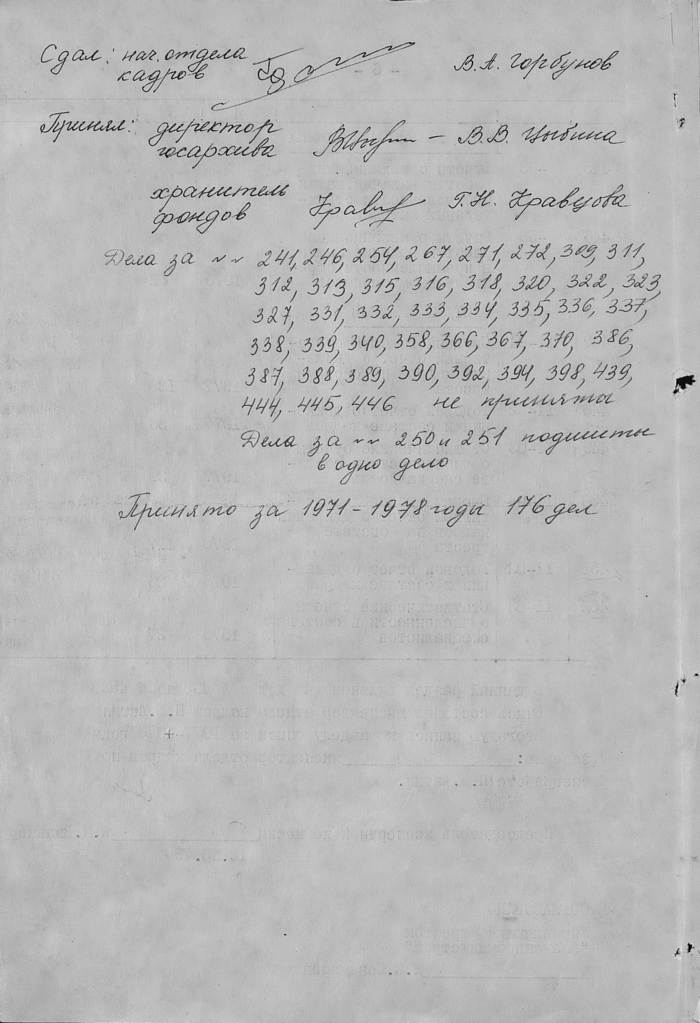 Сдал: нач. отдела В.А. Горбунов
кадров
Принял: директор
госархива — В.В. Цыбина
хранитель
фондов Г.Н. Кравцова
Дела за №№ 241, 246, 254, 267, 271, 272, 309, 311,
312, 313, 315, 316, 318, 320, 322, 323,
327, 331, 332, 333, 334, 335, 336, 337,
338, 339, 340, 358, 366, 367, 370, 386,
387, 388, 389, 390, 392, 394, 398, 439,
444, 445, 446 не приняты
Дела за №№ 250 и 251 подшиты
в одно дело
Принято за 1971-1978 годы 176 дел